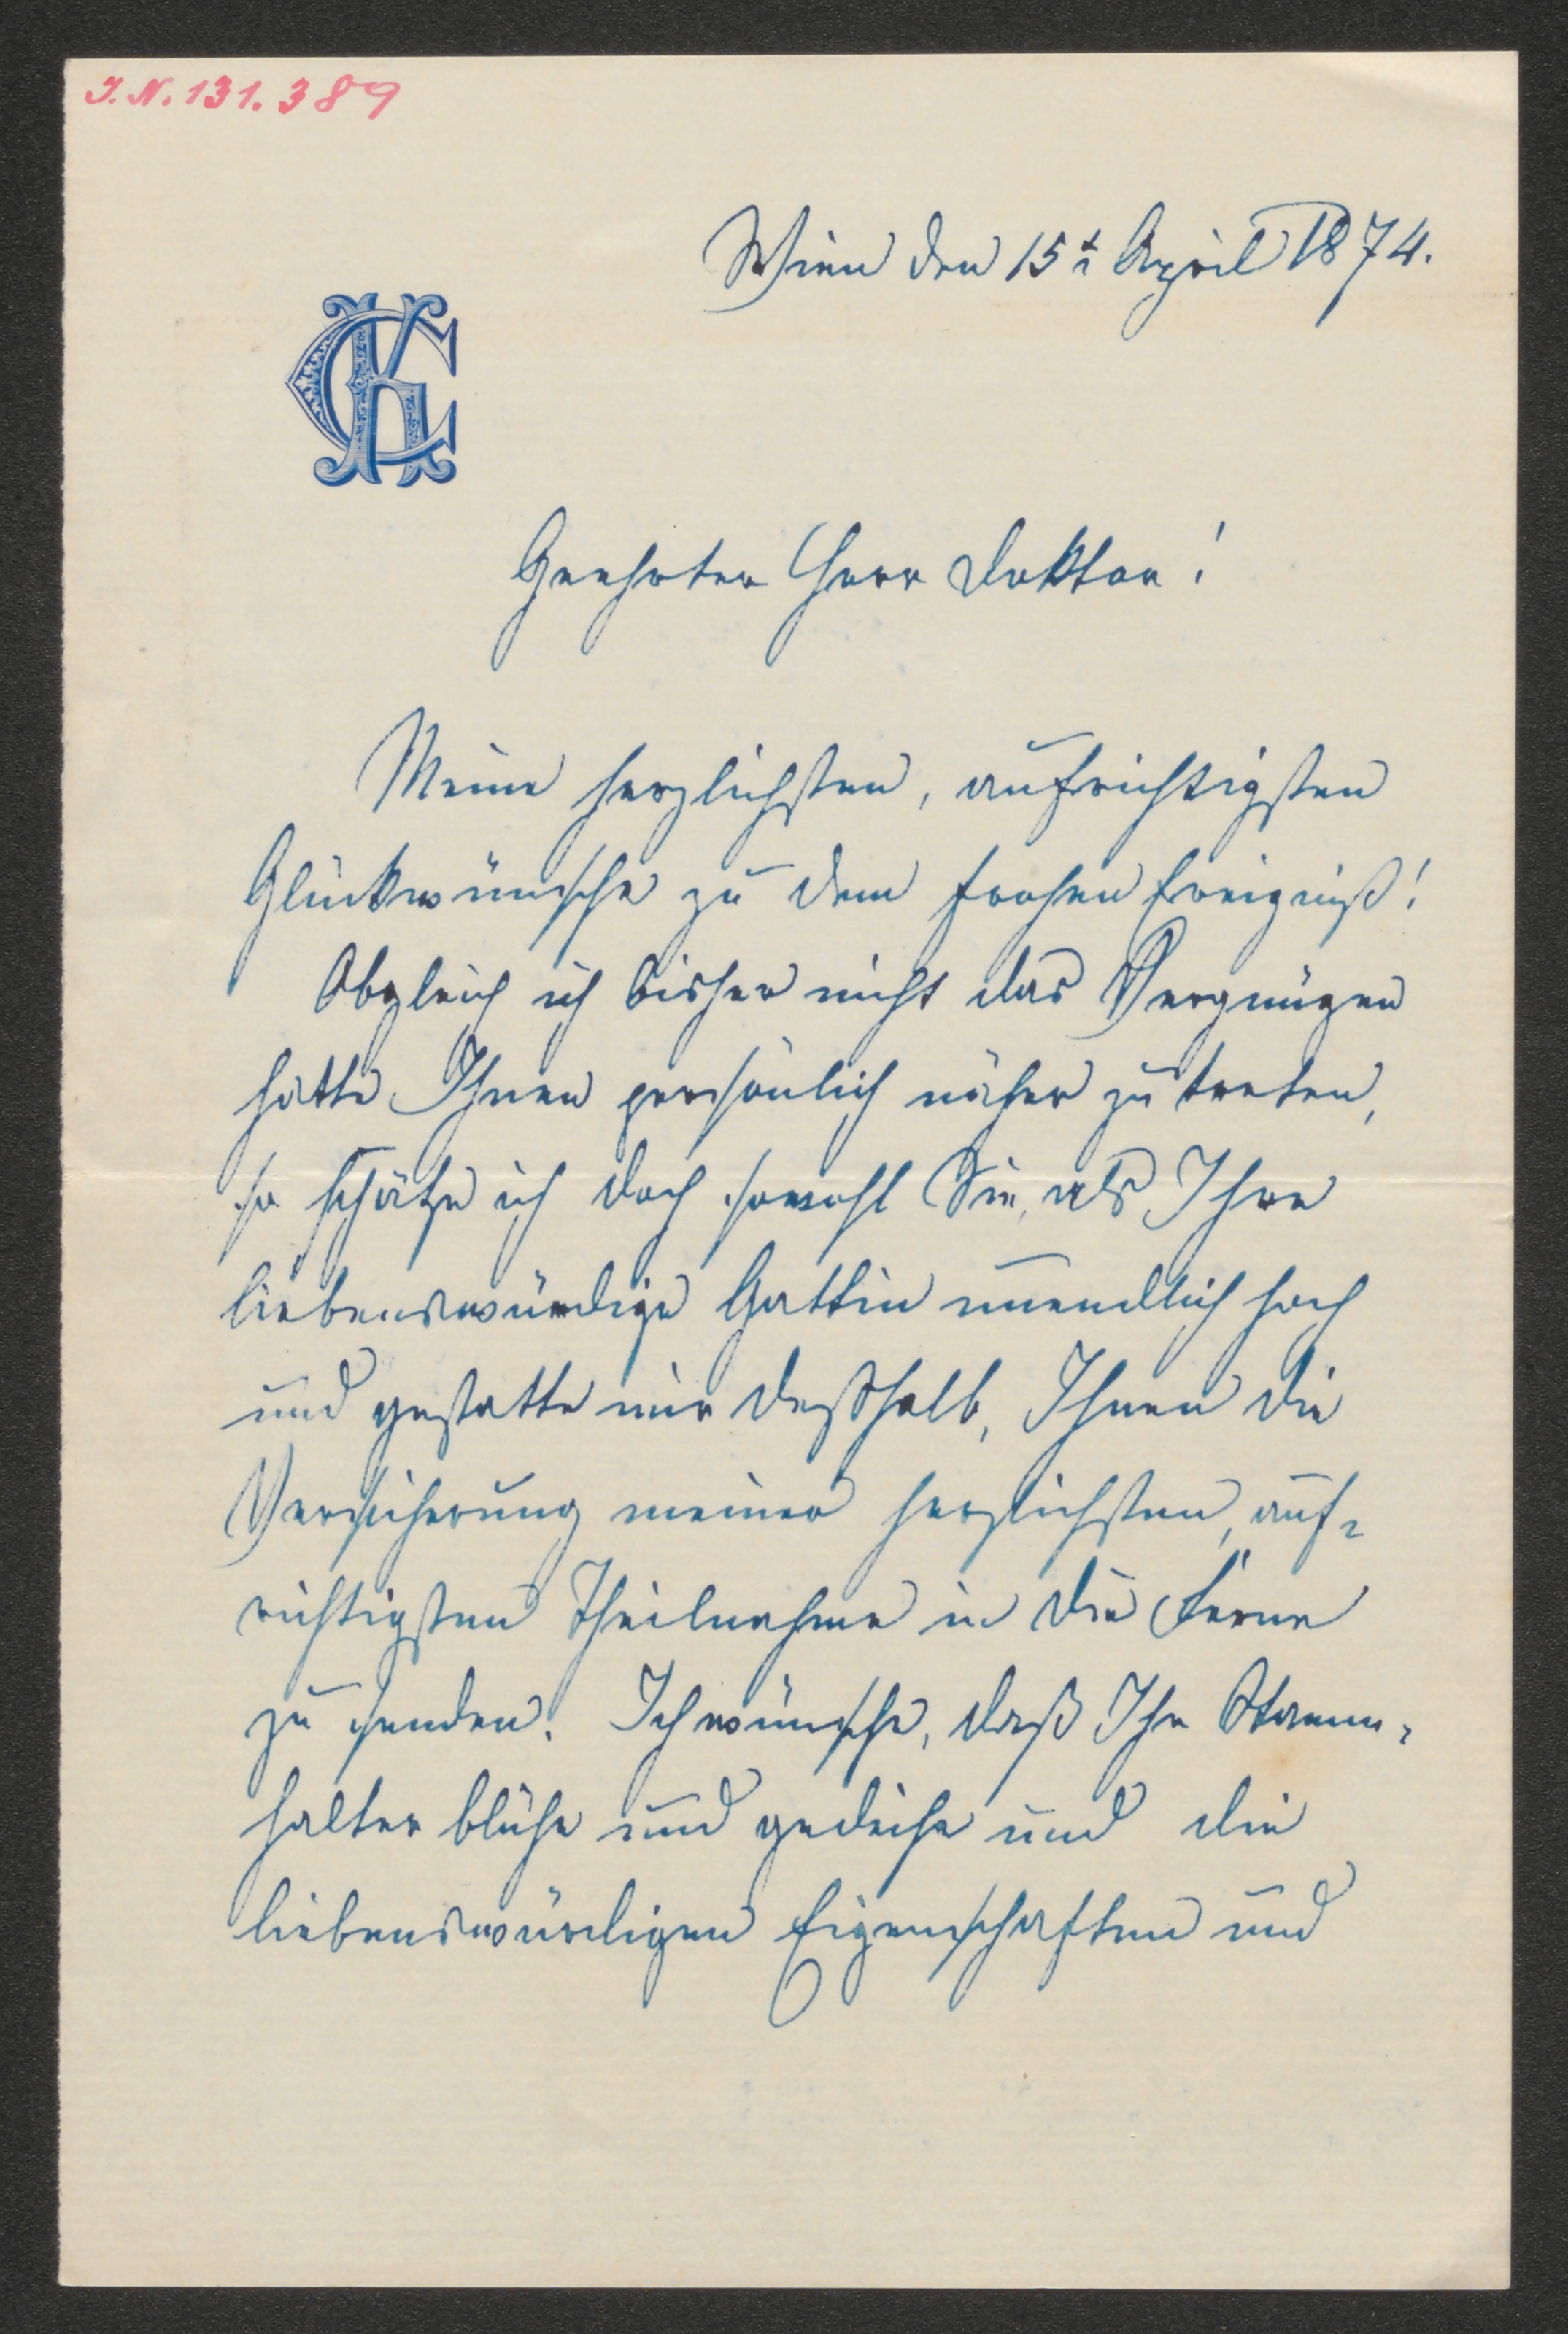 I.N. 131.389
Wien den 15t April 1874.
CK
Geehrter Herr Doktor!
Meine herzlichsten, aufrichtigsten
Glückwünsche zu dem frohen Ereigniß!
Obgleich ich bisher nicht das Vergnügen
hatte Ihnen persönlich näher zu treten,
so schätze ich doch sowohl Sie, als Ihre
liebenswürdige Gattin unendlich hoch
und gestatte mir deßhalb, Ihnen die
Versicherung meiner herzlichsten, auf-
richtigsten Theilnahme in die Ferne
zu senden. Ich wünsche, daß Ihr Stamm-
halter blühe und gedeihe und die
liebenswürdigen Eigenschaften und